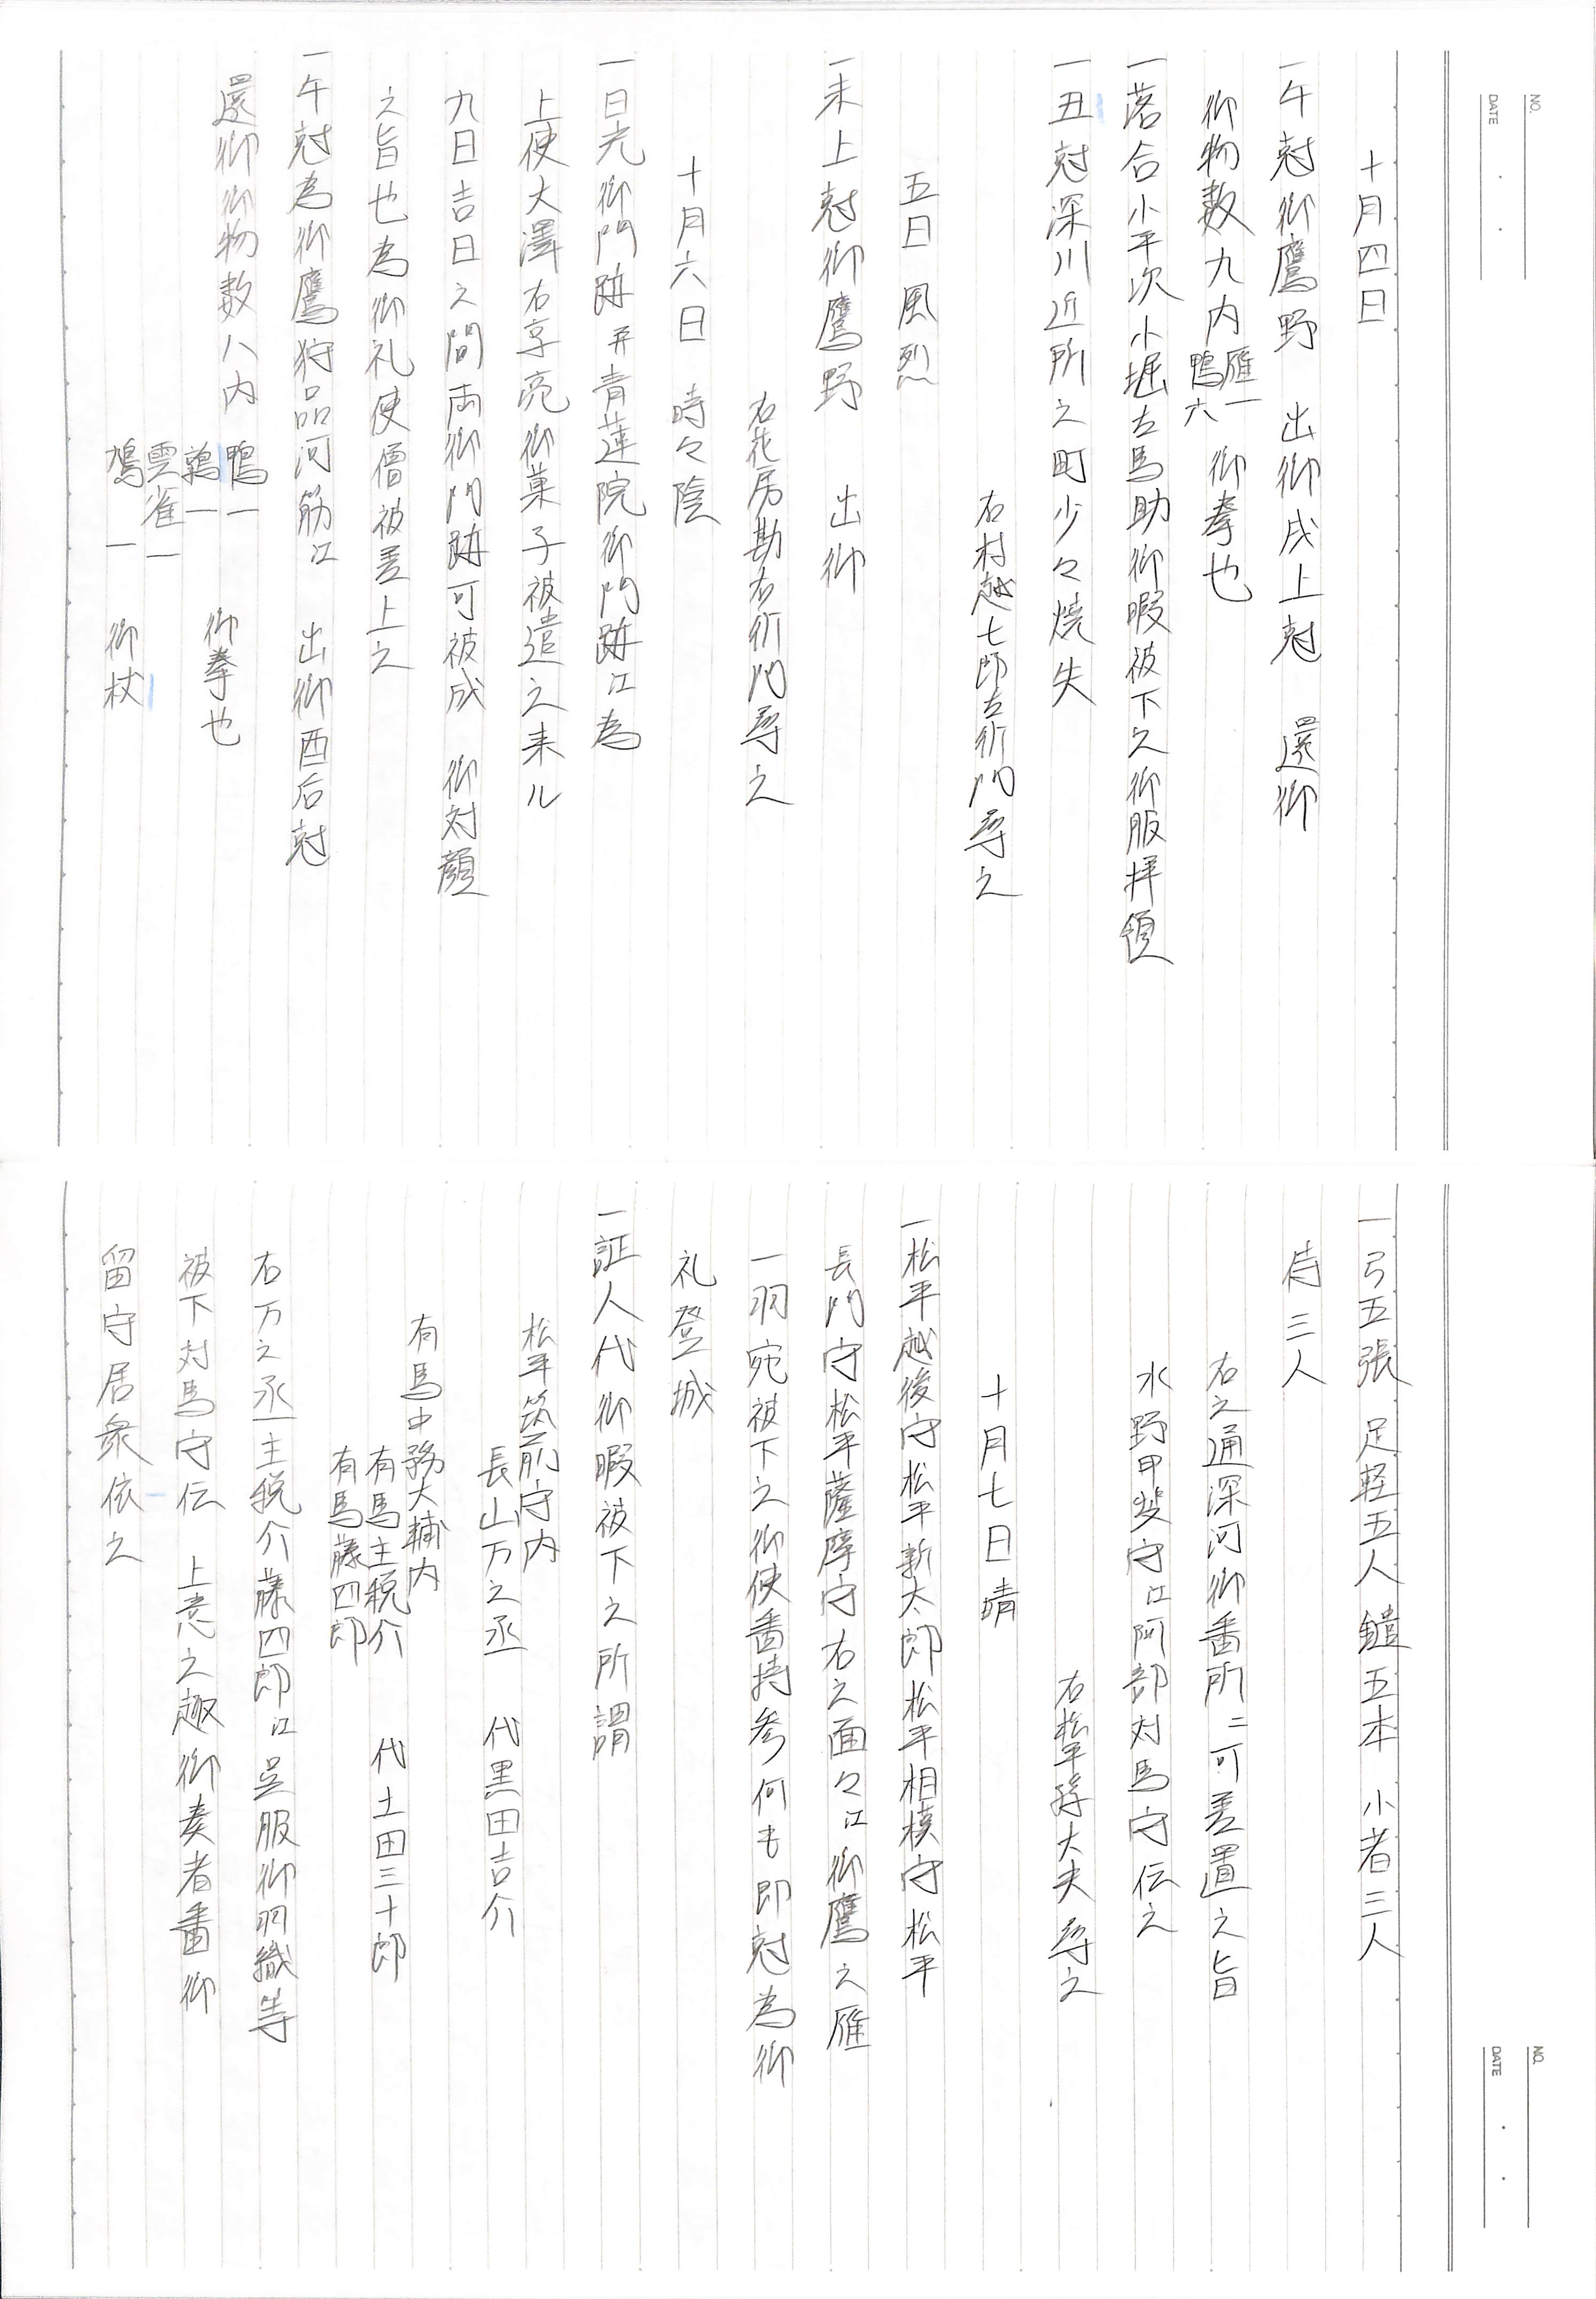 NO.
DATE
十月四日
一午尅御鷹野 出御戌上尅 還御
御物数九内 雁一 鴨六 御拳也
一落合小平次小堀左馬助御暇被下之御服拝領
一丑尅深川近所之町少々焼失
右村越七郎左衛門尋之
五日 風烈
一未上尅御鷹野 出御
右花房勘右衛門尋之
十月六日 時々陰
一日光御門跡并青蓮院御門跡江為
上使大澤右京亮御菓子被遣之来ル
九日吉日之間両御門跡可被成 御対顔
之旨也為御礼使僧被差上之
一午尅為御鷹狩品河筋江 出御酉后尅
還御御物数八内 鴨一
鶉一 御拳也
雲雀一
鳩 一 御杖
NO.
DATE
一弓五張 足軽五人 鑓五本 小者三人
侍三人
右之通深河御番所ニ可差置之旨
水野甲斐守江阿部対馬守伝之
右松平孫大夫尋之
十月七日晴
一松平越後守松平新太郎松平相模守松平
長門守松平薩摩守右之面々江御鷹之雁
一羽宛被下之御使番持参何も即尅為御
礼登城
一証人代御暇被下之所謂
松平筑前守内
長山万之丞 代黒田吉介
有馬中務大輔内
有馬主税介 代土田三十郎
有馬藤四郎
右万之丞主税介藤四郎江呉服御羽織等
被下対馬守伝 上意之趣御奏者番御
留守居衆依之